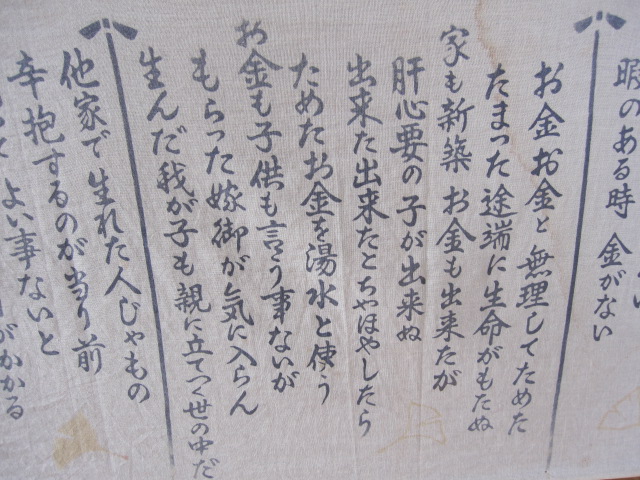 暇のある時 金がない
お金お金と 無理してためた
たまった途端に生命がもたぬ
家も新築 お金も出来たが
肝心要の子が出来ぬ
出来た出来たとちやほやしたら
ためたお金を湯水と使う
お金も子供も言う事ないが
もらった嫁御が気に入らん
生んだ我が子も親に立てつく世の中だ
他家で生れた人じゃもの
辛抱するのが当り前
よい事ないと
がかかる